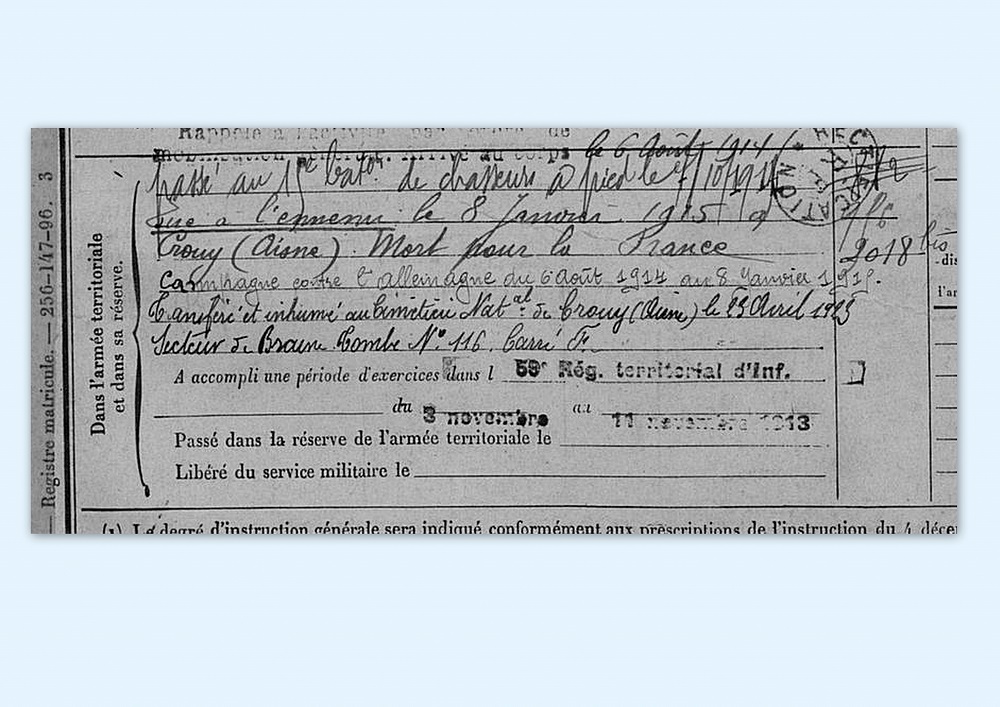 Rappelé à l'activité par ordre de
mobilisation générale. Arrivé au corps le 6 Août 1914
passé au bat^on de chasseurs à pied le 10/1914
tué à l'ennemi le 8 Janvier 1915 à
Crouy (Aisne). Mort pour la France
Campagne contre l'allemagne du 6 Août 1914 au 8 Janvier 1915.
Transféré et inhumé au Cimetière Nat^al de Crouy (Aisne) le 23 Avril 1925
Secteur de Braine Tombe N° 116 Carré F.
A accompli une période d'exercices dans l 59e Rég. territorial d'Inf.
du 3 novembre au 11 novembre 1913
Passé dans la réserve de l'armée territoriale le
Libéré du service militaire le
Dans l'armée territoriale
et dans sa réserve.
— Registre matricule. — 256-147-96. 3
2018 bis
(1) Le degré d'instruction générale sera indiqué conformément aux prescriptions de l'instruction du 4 déce